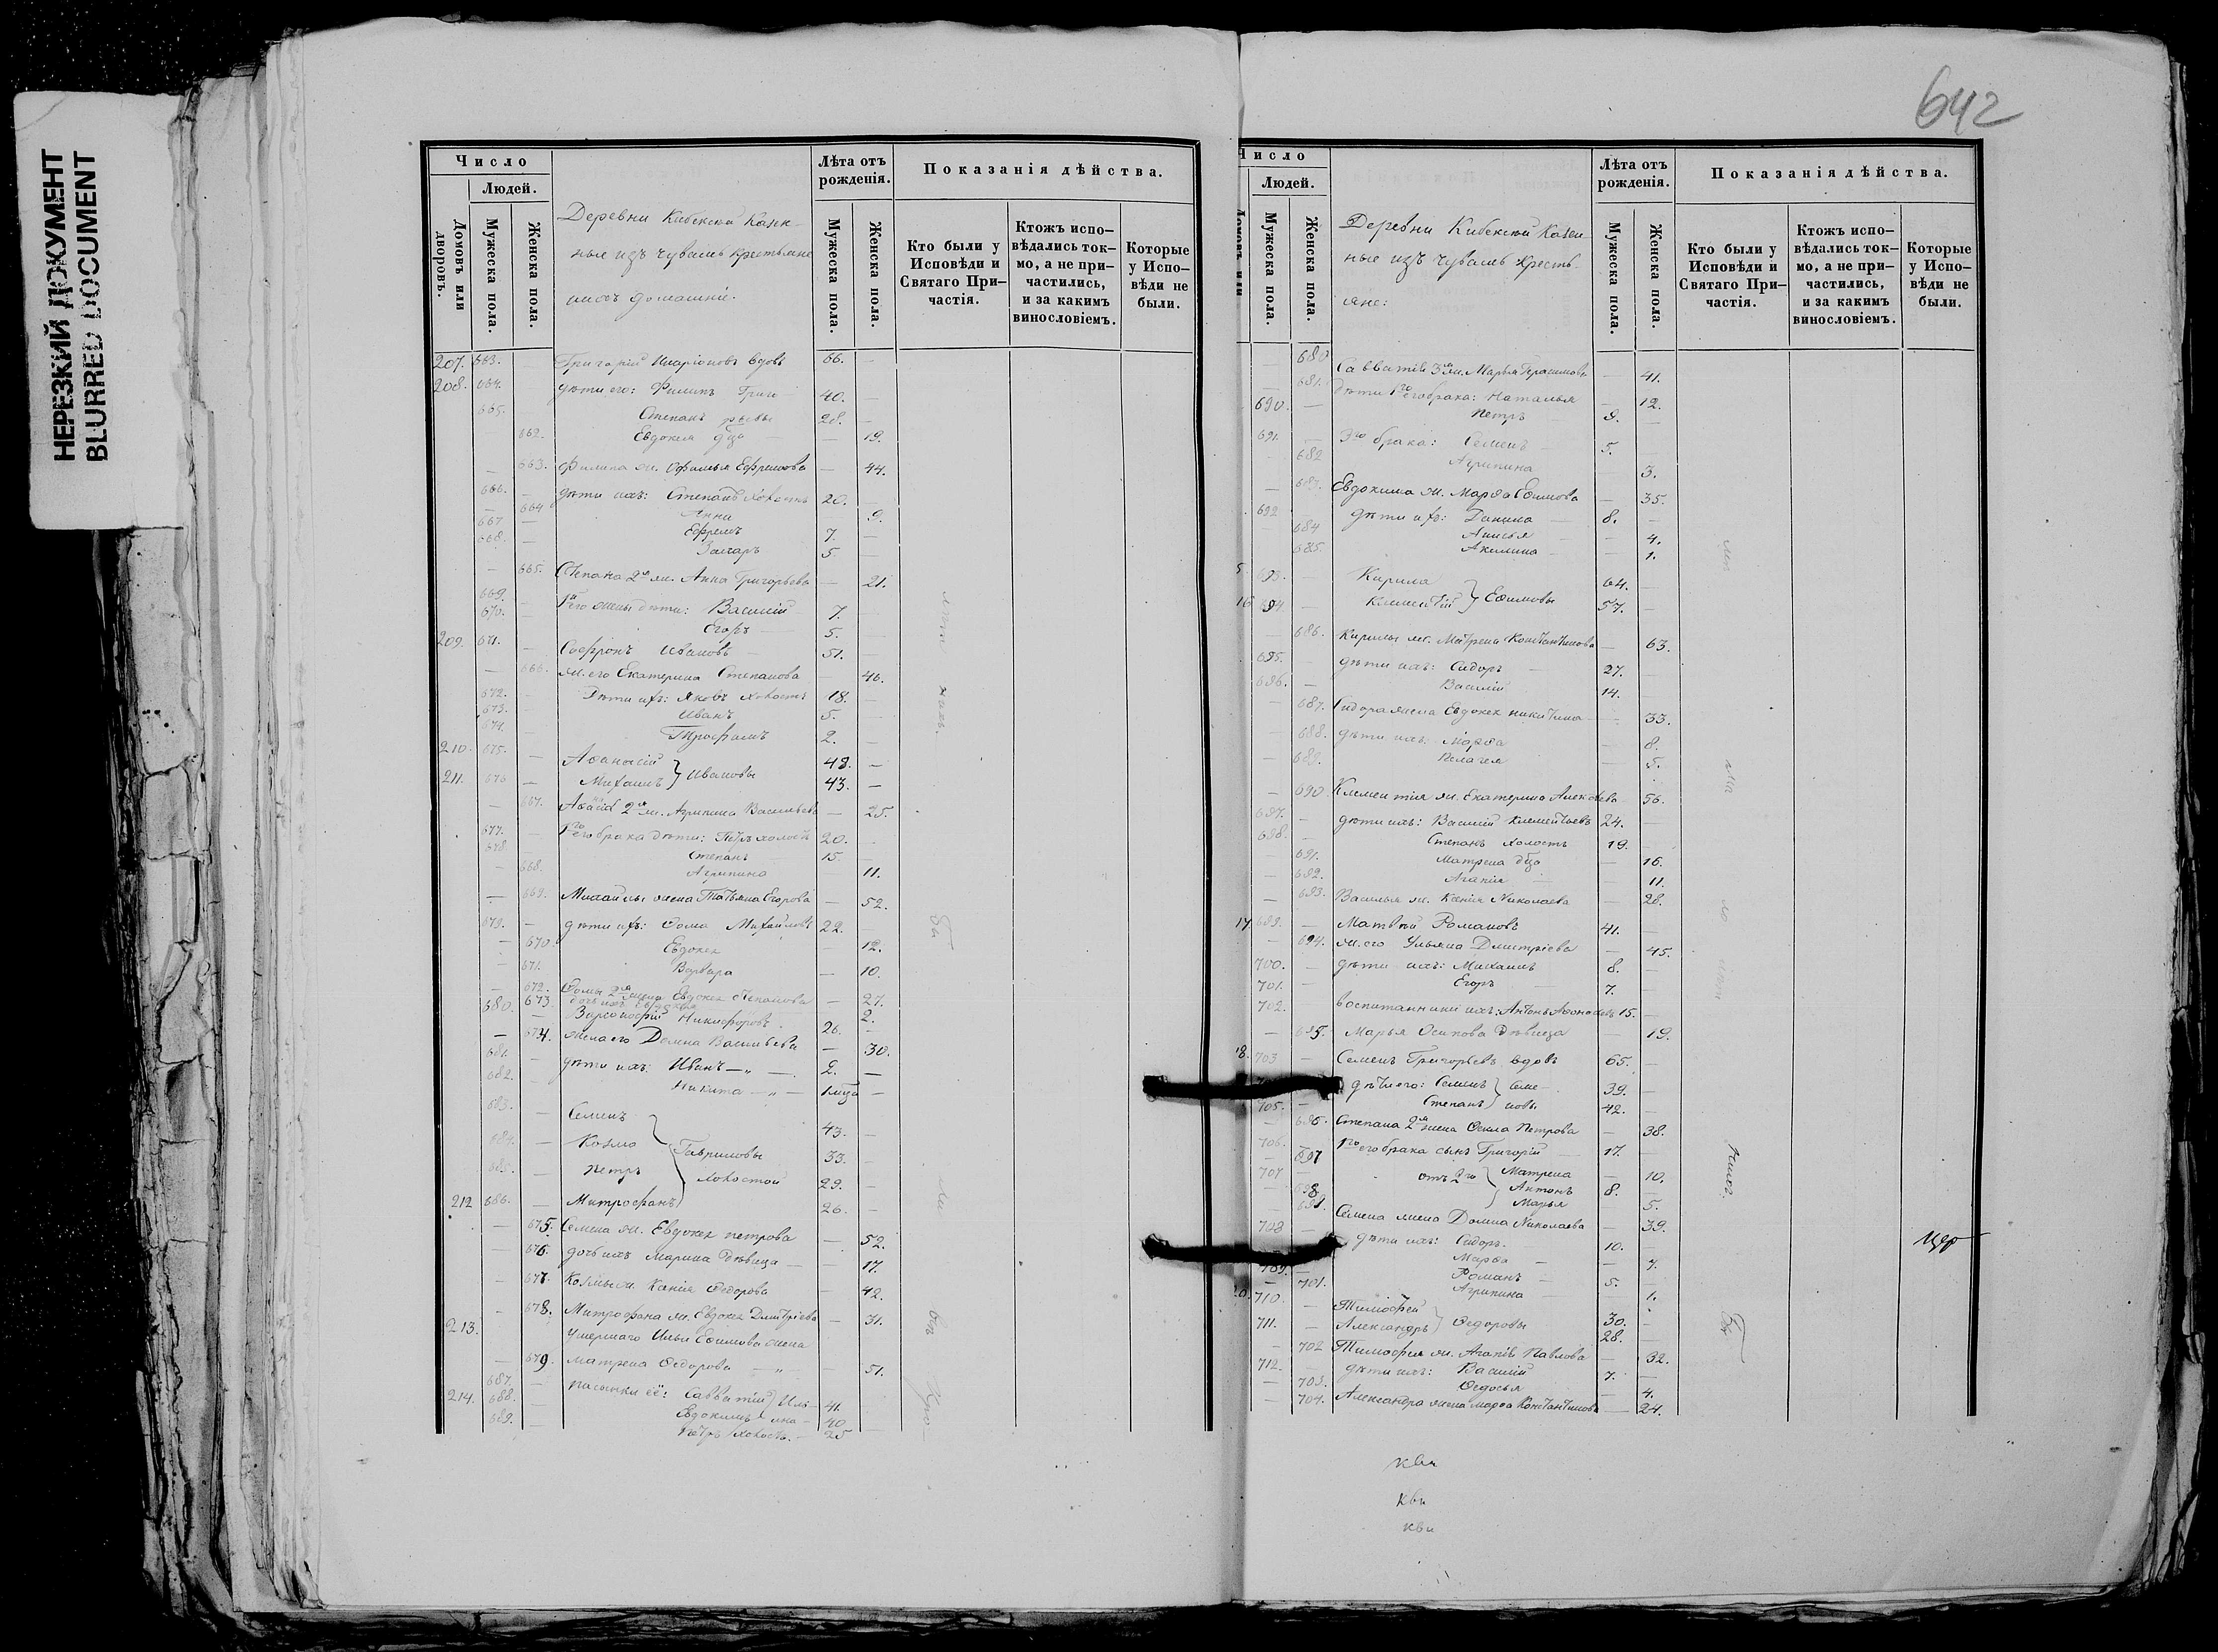 НЕРЕЗКИЙ ДОКУМЕНТ
BLURRED DOCUMENT
642
Число
Людей.
Домовъ или дворовъ.
Мужеска пола.
Женска пола.
Деревни Кибекской Казен-
ные изъ чувашъ крестьяне
ихъ домашніе.
Лѣта отъ рожденія.
Мужеска пола.
Женска пола.
Показанія дѣйства.
Кто были у Исповѣди и Святаго При-частія.
Ктожъ испо-вѣдались ток-мо, а не при-частились, и за какимъ винословіемъ.
Которые у Испо-вѣди не были.
207. 663. Григорій Иларіоновъ вдовъ 66. —
208. 664. дѣти его: Филипъ Григо- 40. —
665. Степанъ рьевы 28. —
662. Евдокея дѣв — 19.
663. Филипа ж. Офимья Ефремова — 44.
666. — дѣти ихъ: Степанъ холостъ 20. —
— 664 Анна 9.
667 — Ефремъ 7. —
668. — Захаръ 5 —
— 665. Степана 2я ж. Анна Григорьева — 21.
669. — 1й его жены дѣти: Василій 7.
670. — Егоръ 5.
209. 671. — Софронъ Ивановъ 51. —
— 666. ж. его Екатерина Степанова 46.
672. — Дѣти ихъ: Яковъ холостъ 18. —
673. Иванъ 5.
674. Трофимъ 2. —
210. 675. — Афанасій } Ивановы 48. —
211. 676 — Михаилъ 43. —
— 667. Афанас 2я ж. Агрипина Васильева — 25.
677. — 1го его брака дѣти: Петръ холостъ 20. —
678 Степанъ 15. —
— 668. Агрипина — 11.
— 669. Михайлы жена Татьяна Егорова — 52.
679. — дѣти ихъ: Фома Михайловъ 22. —
— 670. Евдокея 12.
— 671. Варвара — 10.
— 672. Фомы 2я жена Евдокея Степанова — 27.
673. дочь ихъ 2.
680. — Варсонофій Никифоровъ 26. —
— 674. жена его Домна Васильева — 30.
681. дѣти ихъ: Иванъ — 2. —
682. Никита — 1 мца —
683. — Семенъ 43. —
684. — Козма } Гавриловы 33. —
685. — Петръ холостой 29. —
212 686. — Митрофанъ 26. —
— 675. Семена ж. Евдокея Петрова — 52.
— 676. дочь ихъ Марина дѣвица — 17.
— 677. Козмы ж. Ксенія Федорова 42.
— 678. Митрофана ж. Евдокея Дмитріева — 31.
213. Умершаго Ильи Ефимова жена
— 679. Матрена Федорова — 51.
687. — пасынки её: Савватій } Иль- 41.
214. 688. — Евдокимъ ина — 40
689. — Петръ холостъ. — 25
Число
Людей.
Домовъ или
Мужеска пола.
Женска пола.
Деревни Кибекской Казен-
ные изъ чувашъ кресть-
яне:
Лѣта отъ рожденія.
Мужеска пола.
Женска пола.
Показанія дѣйства.
Кто были у Исповѣди и Святаго При-частія.
Ктожъ испо-вѣдались ток-мо, а не при-частились, и за какимъ винословіемъ.
Которые у Испо-вѣди не были.
680 Савватія 3я ж. Марья Герасимова — 41.
— 681. дѣти 1го его брака: Наталья — 12.
690. — Петръ 9. —
691. — 3го брака: Семенъ 5.
682 Агрипина 3.
— 683. Евдокима ж. Марфа Ефимова — 35.
692 дѣти ихъ: Данила 8. —
684 Анисья 4.
685. Акилина — 1.
693. — Кирила } Ефимовы 64. —
694 — Климентій 57. —
— 686. Кирилы ж. Матрена Константинова — 63.
695. — дѣти ихъ: Сидоръ 27. —
696. — Василій 14. —
— 687. Сидора жена Евдокея Никитина — 33.
— 688. дѣти ихъ: Марфа 8.
— 689. Пелагея — 5.
— 690. Климентія ж. Екатерина Алексѣева 56.
697. — дѣти ихъ: Василій Климентьевъ 24. —
698. — Степанъ холостъ 19. —
— 691. Матрена дѣв — 16.
— 692. Агапія 11.
— 693. Василья ж. Ксенія Николаева — 28.
17 699. — Матвѣй Романовъ 41. —
— 694. ж. его Ульяна Дмитріева — 45.
700. — дѣти ихъ: Михаилъ 8. —
701. — Егоръ 7. —
702. воспитанники ихъ: Антонъ Афонасьевъ 15. —
— 695. Марья Осипова дѣвица — 19.
18. 703 — Семенъ Григорьевъ вдовъ 65. —
дѣти его: Семенъ } Семе- 39. —
705. — Степанъ новы 42. —
— 696. Степана 2я жена Фекла Петрова — 38.
706. — 1го его брака сынъ Григорій 17. —
697 отъ 2го } Матрена 10.
707 — Антонъ 8. —
698 Марья 5.
Семена жена Домна Николаева — 39.
708 дѣти ихъ: Сидоръ. 10. —
Марфа — 7.
709. — Романъ 5. —
— 701. Агрипина 1.
710. — Тимофей } Федоровы 30. —
711. — Александръ 28. —
— 702 Тимофея ж. Агапія Павлова — 32.
712. — дѣти ихъ: Василій 7. —
— 703. Федосья — 4.
— 704. Александра жена Марфа Константинова — 24.